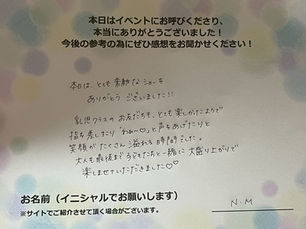 本日はイベントにお呼びくださり、
本当にありがとうございました!
今後の参考の為にぜひ感想をお聞かせください!
本日は、とても素敵なショーを
ありがとうございました!!
乳児クラスのお友だちも、とても楽しかったようで
指を差したり「わぁ〜♡」と声をあげたりと
笑顔がたくさん溢れる時間でした。
大人も最後まで子どもたちと一緒に大盛り上がりで
楽しませていただきました♡♡
お名前(イニシャルでお願いします)
N.M
※サイトでご紹介させて頂く場合がございます。